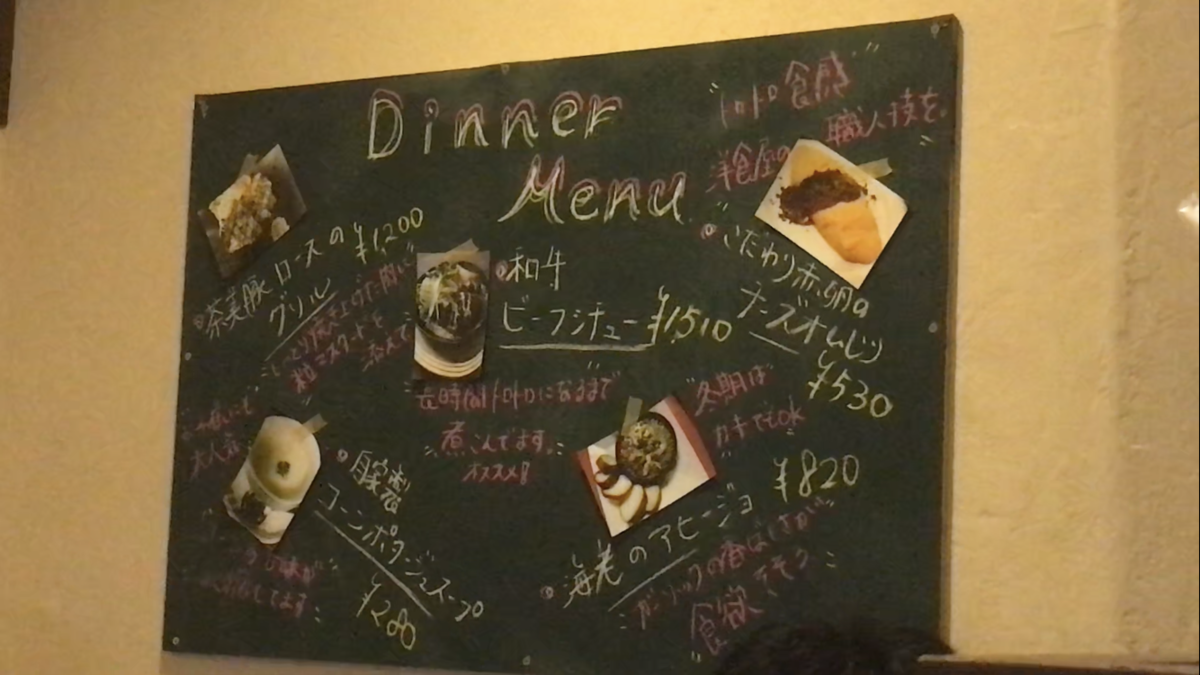 Dinner
Menu
トロトロ食感
洋食屋の職人技を
茶美豚ロースの
グリル
¥1,200
粒マスタードを
添えて
和牛
ビーフシチュー ¥1,510
長時間トロトロになるまで
煮こんでます。
オススメ!!
こだわり赤卵の
チーズオムレツ
¥530
大人気
自家製
コーンポタージュスープ
¥280
冬期は
カキでもOK
海老のアヒージョ
¥820
ガーリックの香ばしさが
食欲をそそう